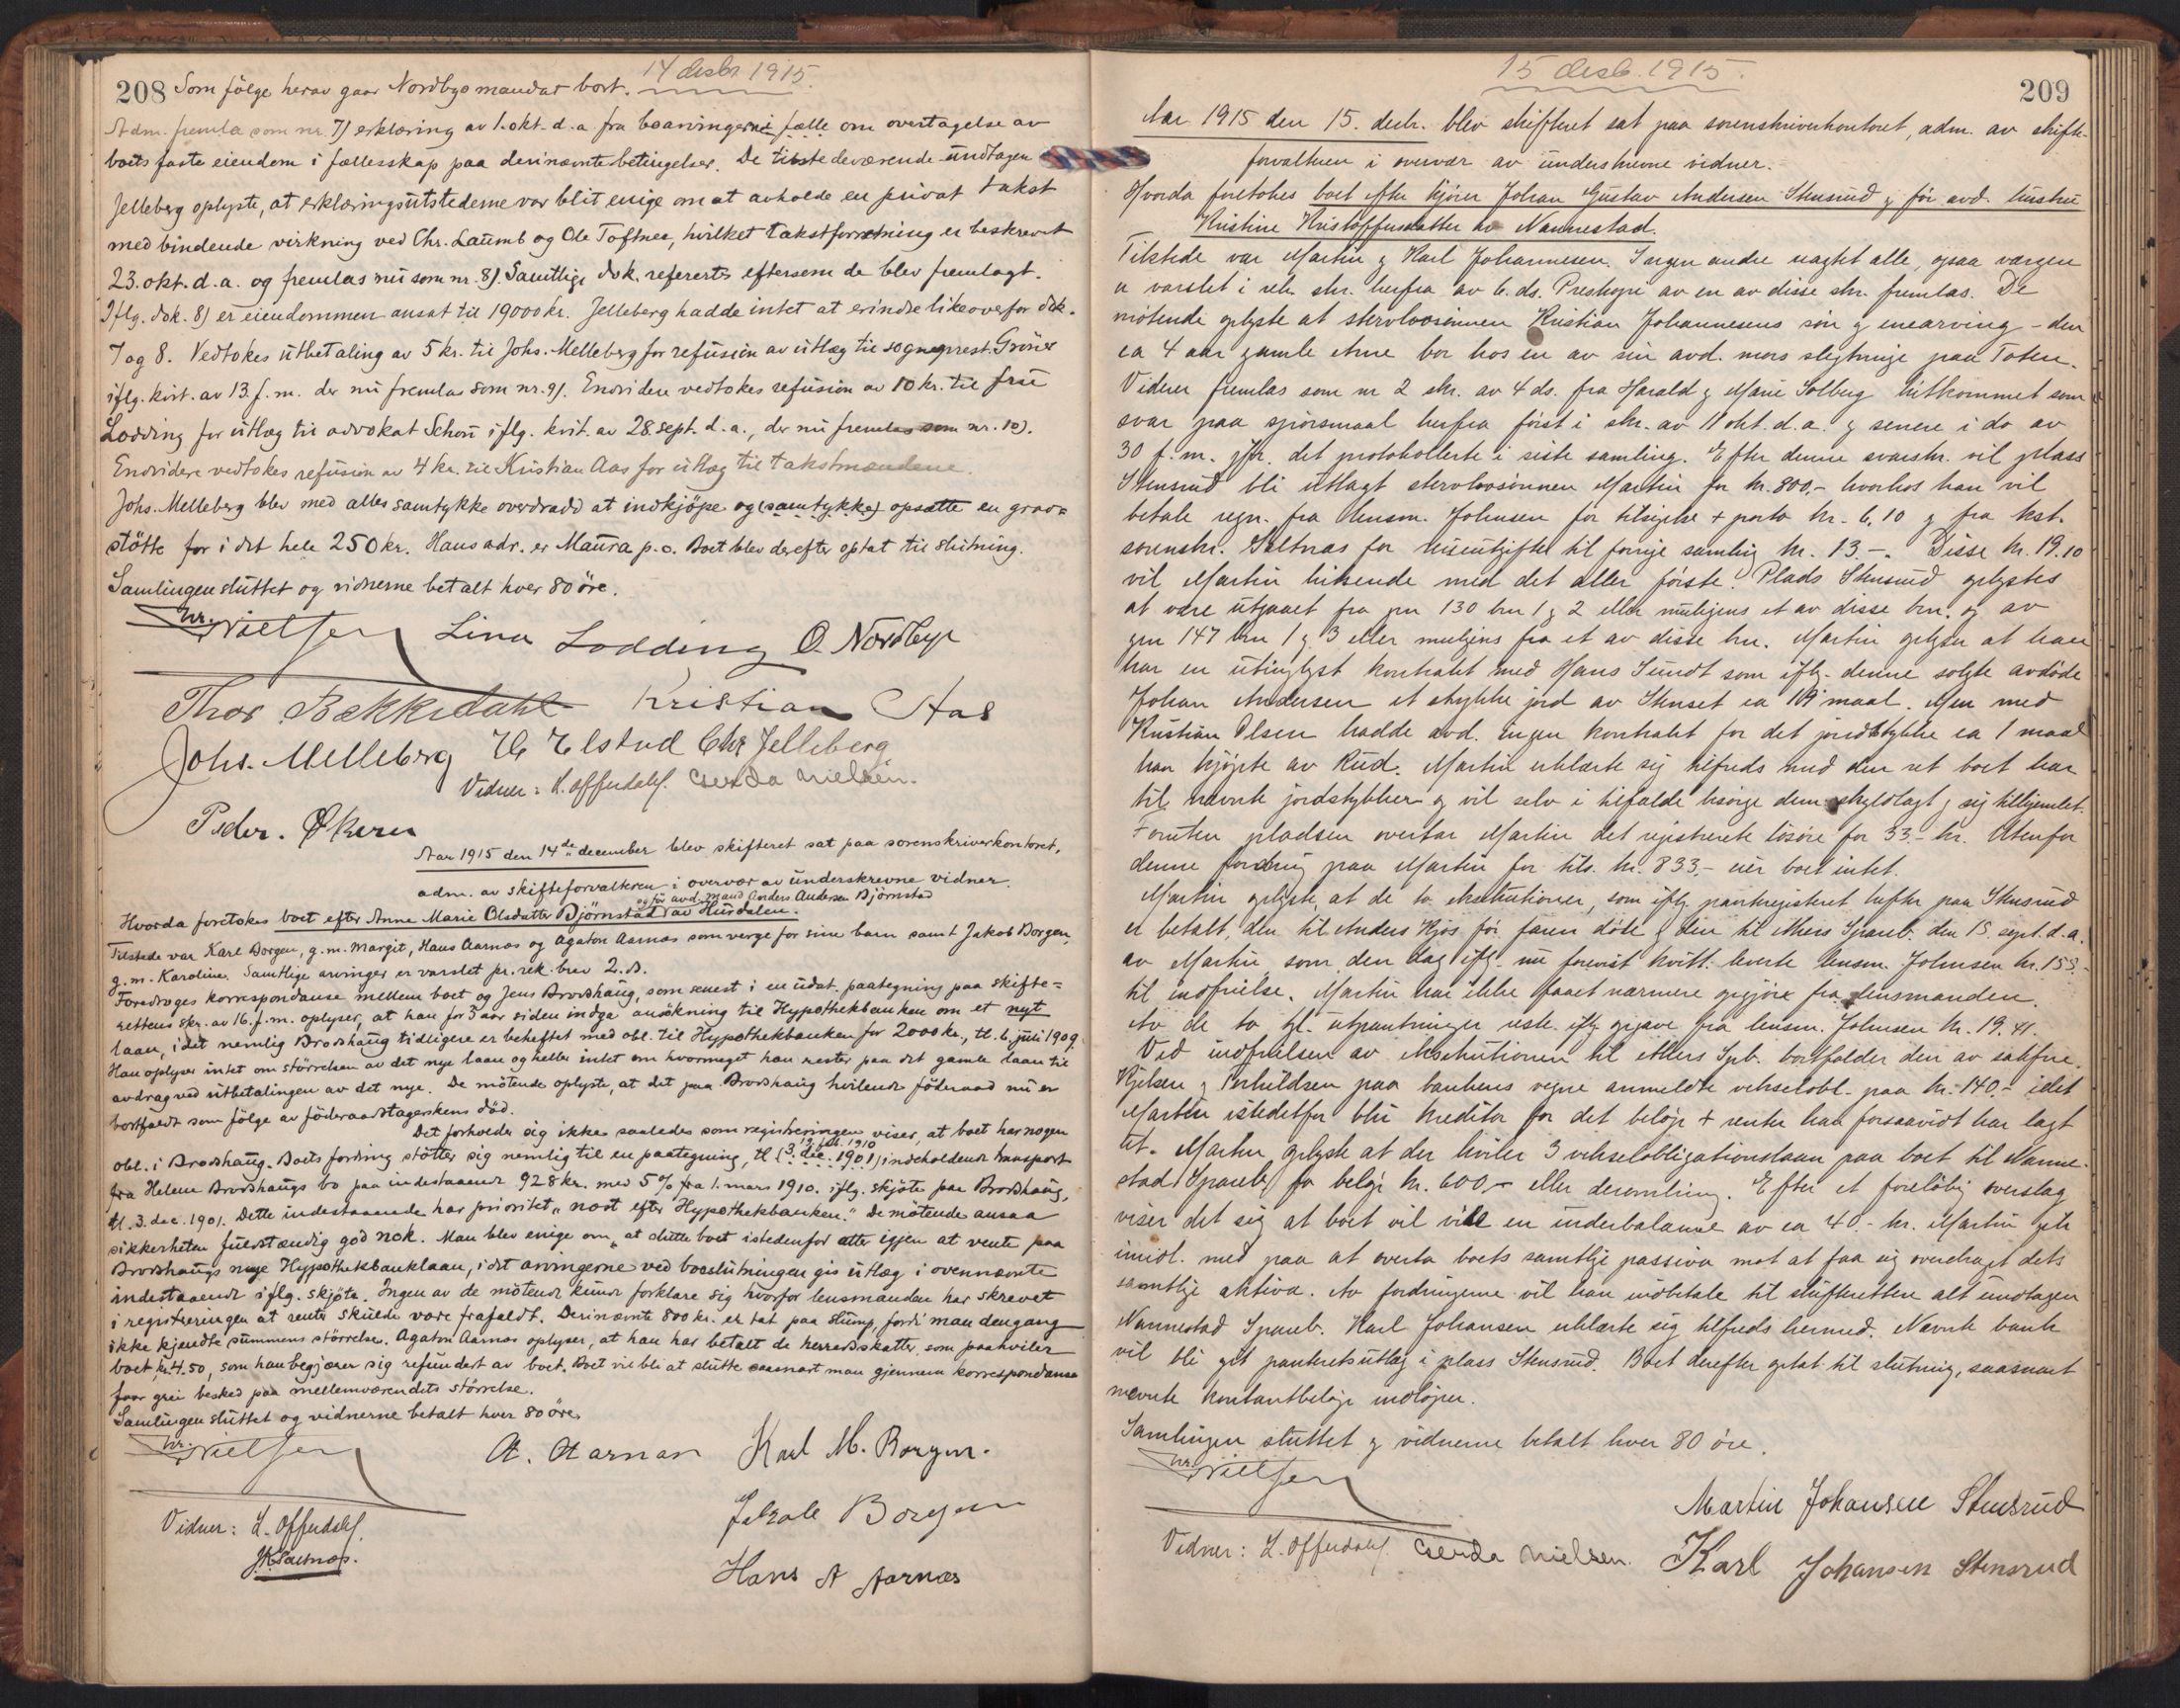 14 desbr 1915.
208 Som fölge herav gaar Nordbys mandat bort.
Adm. fremla som nr. 7) erklæring av 1. okt. d.a. fra boarvingerne i fælle om overtagelse av
boets faste eiendom i fællesskap paa deri nævnte betingelser. De tilstedeværende undtagen
Jelleberg oplyste, at erklæringsutstederne var blit enige om at avholde en privat takst
med bindende virkning ved Chr. Laumb og Ole Toftner, hvilket takstforretning er beskrevet
23. okt. d.a. og fremlas nu som nr. 8). Samtlige dok. refererts eftersom de blev fremlagt.
Iflg. dok. 8) er eiendommen ansat til 19000 kr. Jelleberg hadde intet at erindre likeoverfor dok.
7 og 8. Vedtokes utbetaling av 5 kr. til Johs. Melleberg for refusion av utlæg til sogneprest Gröner
iflg. kvit. av 13. f.m. der nu fremlas som nr. 9). Endvidere vedtokes refusion av 10 kr. til fru
Lodding for utlæg til advokat Schou iflg. kvit. av 28. sept. d.a., der nu fremlas som nr. 10).
Endvidere vedtokes refusion av 4 kr. til Kristian Aas for utlæg til takstmændene.
Johs. Melleberg blev med alles samtykke overdradd at indkjöpe og (samtykke) opsætte en grav=
stötte for i det hele 250 kr. Hans adr. er Maura p.o. Boet blev derefter optat til slutning.
Samlingen sluttet og vidnerne betalt hver 80 öre.
Nielsen Lina Lodding O. Nordbye
Thor Bækkedahl Kristian Aas
Johs. Melleberg Elstad Chr Jelleberg
Vidner: L. Offerdahl. Gerda Nielsen.
Peder. Økern
Aar 1915 den 14de december blev skifteret sat paa sorenskriverkontoret,
adm. av skifteforvalteren i overvær av underskrevne vidner.
og för avd. mand Anders Andersen Björnstad
Hvorda foretokes boet efter Anne Marie Olsdatter Björnstad av Hurdalen.
Tilstede var Karl Borgen, g.m. Margit, Hans Aarnæs og Agaton Aarnæs som verge for sine barn samt Jakob Borgen,
g.m. Karoline. Samtlige arvinger er varslet pr. rek. brev 2. ds.
Foredroges korrespondanse mellem boet og Jens Brodshaug, som senest i en udat. paategning paa skifte=
rettens skr. av 16. f.m. oplyser, at han for 5 aar siden indga ansökning til Hypothekbanken om et nyt
laan, idet nemlig Brodshaug tidligere er beheftet med obl. til Hypothekbanken for 2000 kr., tl. 6. juli 1909.
Han oplyser intet om störrelsen av det nye laan og heller intet om hvormeget han rester paa det gamle laan til
avdrag ved utbetalingen av det nye. De mötende oplyste, at det paa Brodshaug hvilende föderaad nu er
bortfaldt som fölge av föderaadstagerskens död.
Det forholder sig ikke saaledes som registreringen viser, at boet har nogen
19 feb. 1910
obl. i Brodshaug. Boets fordring stötter sig nemlig til en paategning, tl. (3. dec. 1901) indeholdende transport
fra Helene Brodshaugs bo paa indestaaende 928 kr. med 5% fra 1. mars 1910. iflg. skjöte paa Brodshaug,
tl. 3. dec. 1901. Dette indestaaende har prioritet "næst efter Hypothekbanken." De mötende ansaa
sikkerheten fuldstændig god nok. Man blev enige om at slutte boet istedenfor atter igjen at vente paa
Brodshaugs nye Hypothekbanklaan, idet arvingerne ved boslutningen gis utlæg i ovennævnte
indestaaende iflg. skjöte. Ingen av de mötende kunde forklare sig hvorfor lensmanden har skrevet
i registreringen at rente skulde være frafaldt. Derinævnte 800 kr. er tat paa slump, fordi man dengang
ikke kjendte summens störrelse. Agaton Aarnæs oplyser, at han har betalt de herredsskatter, som paahviler
boet, kr. 4.50, som han begjærer sig refundert av boet. Boet vil bli at slutte saasnart man gjennem korrespondanse
faar grei besked paa mellemværendets störrelse.
Samlingen sluttet og vidnerne betalt hver 80 öre.
Nielsen A. Aarnæs Karl M. Borgen.
Jakob Borgen
Vidner: L. Offerdahl.
Hans A Aarnæs
15 desb. 1915.
209
Aar 1915 den 15. decbr. blev skifteret sat paa sorenskriverkontoret, adm. av skifte-
forvalteren i overvær av underskrevne vidner.
Hvorda foretokes boet efter kjører Johan Gustav Andersen Stensrud og før avd. hustru
Kristine Kristoffersdatter av Nannestad.
Tilstede var Martin og Karl Johannesen. Ingen andre uagtet alle, ogsaa vergen
er varslet i rek. skr. herfra av 6. ds. Preskopi av en av disse skr. fremlas. De
møtende oplyste at stervbosønnen Kristian Johannesens søn og enearving - den
ca 4 aar gamle Arne bor hos en av sin avd. mors slegtninge paa Toten.
Videre fremlas som nr 2 skr. av 4 ds. fra Harald og Marie Solberg hitkommet som
svar paa spørsmaal herfra først i skr. av 11 okt. d.a. og senere i do av
30 f.m. jfr. det protokollerte i siste samling. Efter denne svarskr. vil plass
Stensrud bli utlagt stervbosønnen Martin for kr. 800,- hvorhos han vil
betale regn. fra lensm. Johnsen for tilsigelse + porto kr. 6,10 og fra kst.
sorenskr. Saltnæs for reiseutgifter til forrige samling kr. 13.-. Disse kr. 19.10
vil Martin hitsende med det aller første. Plads Stensrud oplystes
at være utgaaet fra gnr 130 bnr 1 og 2 eller muligens et av disse bnr. og av
gnr 147 bnr 1 og 3 eller muligens fra et av disse bnr. Martin oplyser at han
har en utinglyst kontrakt med Hans Sundt som iflg. denne solgte avdøde
Johan Andersen et stykke jord av Stenset ca 10 maal. Men med
Kristian Olsen hadde avd. ingen kontrakt for det jordstykke ca 1 maal
han kjøpte av Rud. Martin erklærte sig tilfreds med den ret boet har
til nævnte jordstykker og vil selv i tilfælde besørge dem skyldlagt og sig tilhjemlet.
Foruten pladsen overtar Martin det registrerte løsøre for 33.- kr. Utenfor
denne fordring paa Martin for tils. kr. 833.- eier boet intet.
Martin oplyste, at de to eksekutioner, som iflg. pantregisteret hefter paa Stensrud
er betalt, den til Anders Kjos før faren døde og den til Akers Spareb. den 15. sept. d.a.
av Martin, som den dag iflg. nu forevist kvitt. leverte lensm. Johnsen kr. 155.-
til indfrielse. Martin har ikke faaet nærmere opgjøre fra lensmanden.
Av de to tgl. utpantninger reste. iflg opgave fra lensm. Johnsen kr. 19.41.
Ved indfrielsen av eksekutionen til Akers Spb. bortfalder den av sakføre
Kjelsen og Torkildsen paa bankens vegne anmeldte vekselobl. paa kr. 140.- idet
Martin istedetfor blir kreditor for det beløp + renter han forsaavidt har lagt
ut. Martin oplyste at der hviler 3 vekselobligationslaan paa boet til Nanne-
stad Spareb. for beløp kr. 600,- eller deromkring. Efter et foreløbig overslag
viser det sig at boet vil vise en underbalanse av ca 40.- kr. Martin gik
imidl. med paa at overta boets samtlige passiva mot at faa sig overdraget dets
samtlige aktiva. Av fordringerne vil han indbetale til skifteretten alt undtagen
Nannestad Spareb. Karl Johansen erklærte sig tilfreds hermed. Nævnte bank
vil bli git panteretsutlæg i plass Stensrud. Boet derefter optat til slutning, saasnart
nævnte kontantbeløp indløper.
Samlingen sluttet og vidnerne betalt hver 80 øre.
Nielsen
Martin Johansen Stensrud
Vidner: L. Offerdahl. Gerda Nielsen. Karl Johansen Stensrud